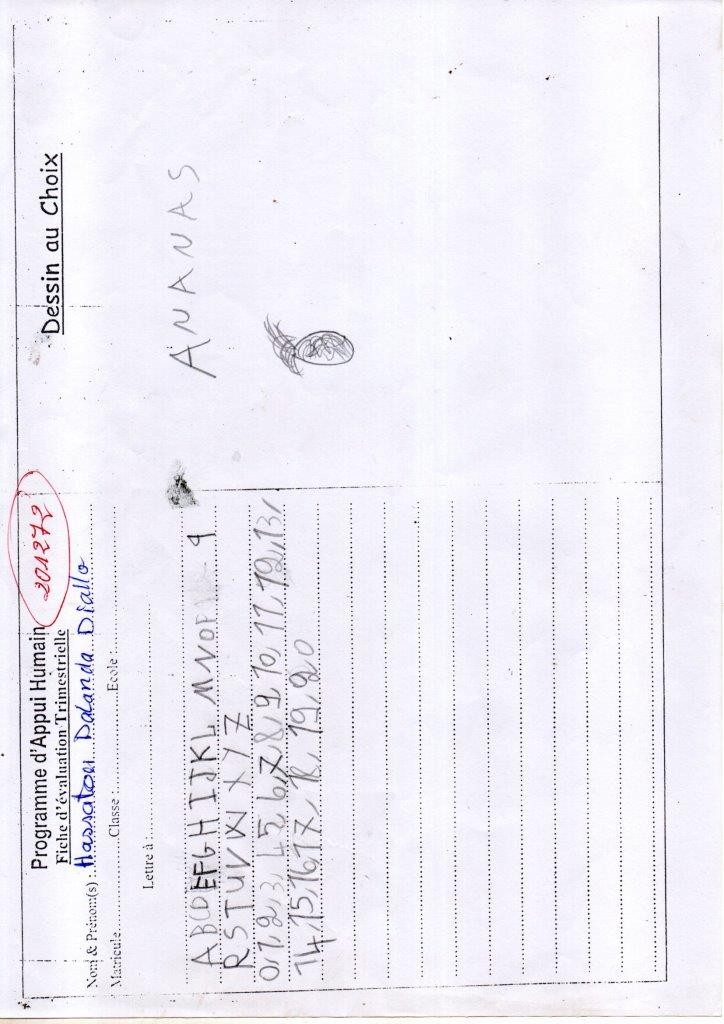 Programme d'Appui Humain
201272
Fiche d'évaluation Trimestrielle
Nom & Prénom(s) : Hassatou Dalanda Diallo
Matricule Classe : Ecole :
Lettre à :
A B C D E F G H I J K L M N O P q
R S T U V W X Y Z
0,1,2,3,4,5,6,7,8,9,10,11,12,13,
14,15,16,17,18,19,20
Dessin au Choix
ANANAS